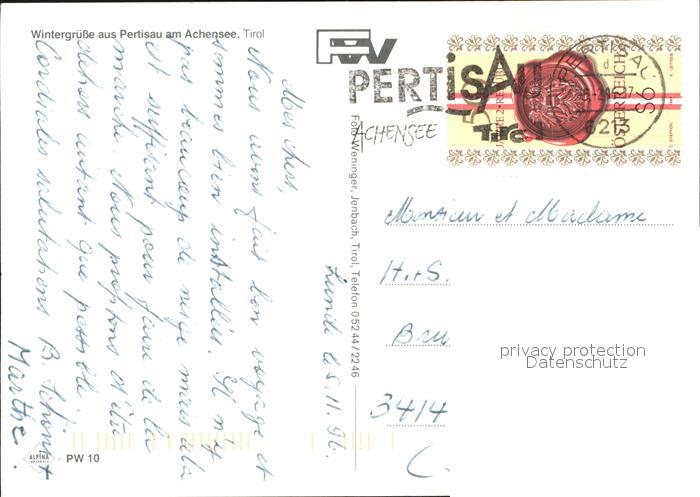 Wintergrüße aus Pertisau am Achensee, Tirol
Mes chers,
Nous avons fait bon voyage et
sommes bien installés. Il n'y
pas beaucoup de neige mais cela
est suffisant pour faire de la
marche. Nous profitons d'être
dehors autant que possible.
Cordiales salutations B.
Marthe.
Lundi le 5. 11. 96.
Foto Weninger, Jenbach, Tirol, Telefon 05244/2246
PERTISAU
ACHENSEE
Tirol
PERTISAU
6213
ÖSTERREICH
S6
Monsieur et Madame
H.+S.
3414
privacy protection
Datenschutz
ALPINA
PW 10